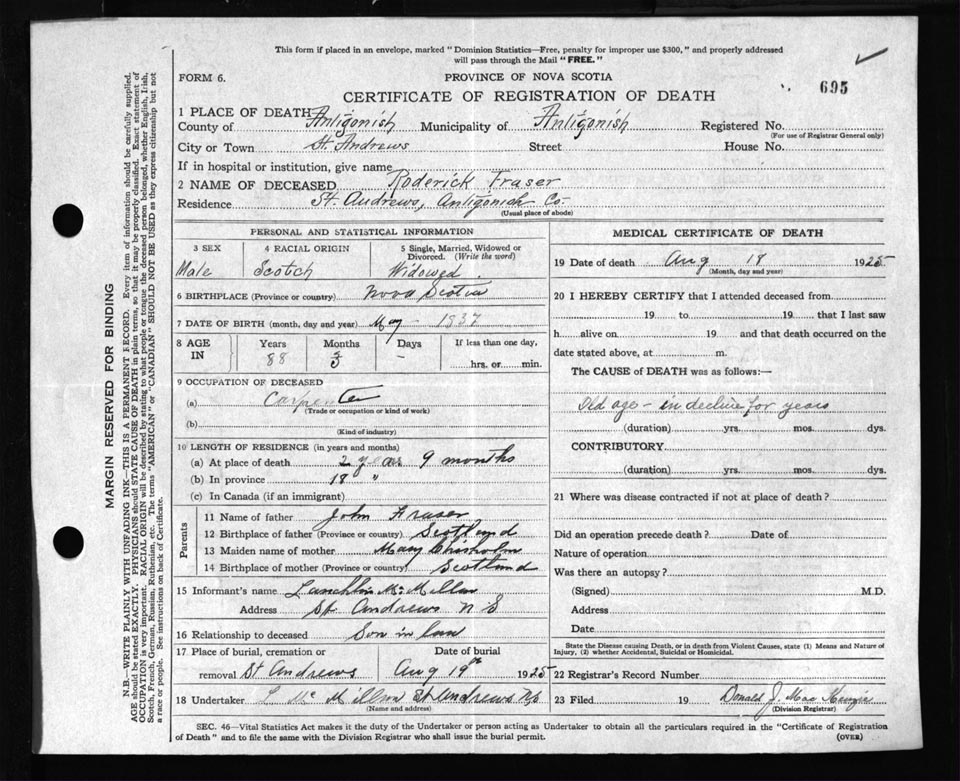 This form if placed in an envelope, marked "Dominion Statistics—Free, penalty for improper use $300," and properly addressed
will pass through the Mail "FREE."
FORM 6.
PROVINCE OF NOVA SCOTIA
695
CERTIFICATE OF REGISTRATION OF DEATH
1 PLACE OF DEATH
County of Antigonish Municipality of Antigonish Registered No.
(For use of Registrar General only)
City or Town St. Andrews Street House No.
If in hospital or institution, give name
2 NAME OF DECEASED Roderick Fraser
Residence St. Andrews, Antigonish Co.
(Usual place of abode)
PERSONAL AND STATISTICAL INFORMATION
3 SEX 4 RACIAL ORIGIN 5 Single, Married, Widowed or
Divorced. (Write the word)
Male Scotch Widowed
6 BIRTHPLACE (Province or country) Nova Scotia
7 DATE OF BIRTH (month, day and year) May - 1837
8 AGE IN Years Months Days If less than one day,
88 3 - hrs. or min.
9 OCCUPATION OF DECEASED
(a) Carpenter
(Trade or occupation or kind of work)
(b)
(Kind of industry)
10 LENGTH OF RESIDENCE (in years and months)
(a) At place of death 2 9 months
(b) In province 18 "
(c) In Canada (if an immigrant)
Parents
11 Name of father John Fraser
12 Birthplace of father (Province or country) Scotland
13 Maiden name of mother Mary Chisholm
14 Birthplace of mother (Province or country) Scotland
15 Informant's name Lauchlin McMillan
Address St Andrews N S
16 Relationship to deceased Son in law
17 Place of burial, cremation or Date of burial
removal St Andrews Aug 19th 1925
18 Undertaker L McMillan St Andrews NS
(Name and address)
MEDICAL CERTIFICATE OF DEATH
19 Date of death Aug 18 1925
(Month, day and year)
20 I HEREBY CERTIFY that I attended deceased from
19 to 19 that I last saw
h alive on 19 and that death occurred on the
date stated above, at m.
The CAUSE of DEATH was as follows:—
Old age - in decline for years
(duration) yrs. mos. dys.
CONTRIBUTORY
(duration) yrs. mos. dys.
21 Where was disease contracted if not at place of death?
Did an operation precede death? Date of
Nature of operation
Was there an autopsy?
(Signed) M.D.
Address
Date
State the Disease causing Death, or in death from Violent Causes, state (1) Means and Nature of
Injury, (2) whether Accidental, Suicidal or Homicidal.
22 Registrar's Record Number
23 Filed 19 Donald J. MacKenzie
(Division Registrar)
SEC. 46—Vital Statistics Act makes it the duty of the Undertaker or person acting as Undertaker to obtain all the particulars required in the "Certificate of Registration
of Death" and to file the same with the Division Registrar who shall issue the burial permit.
(OVER)
MARGIN RESERVED FOR BINDING
N.B.—WRITE PLAINLY WITH UNFADING INK—THIS IS A PERMANENT RECORD. Every item of information should be carefully supplied.
AGE should be stated EXACTLY. PHYSICIANS should STATE CAUSE OF DEATH in plain terms, so that it may be properly classified. Exact statement of
OCCUPATION is very important. RACIAL ORIGIN will be described by stating to what people or tongue the deceased person belonged, whether English, Irish,
Scotch, French, German, Russian, Ruthenian, etc. The terms "AMERICAN" or "CANADIAN" SHOULD NOT BE USED as they express citizenship but not
a race or people. See instructions on back of Certificate.